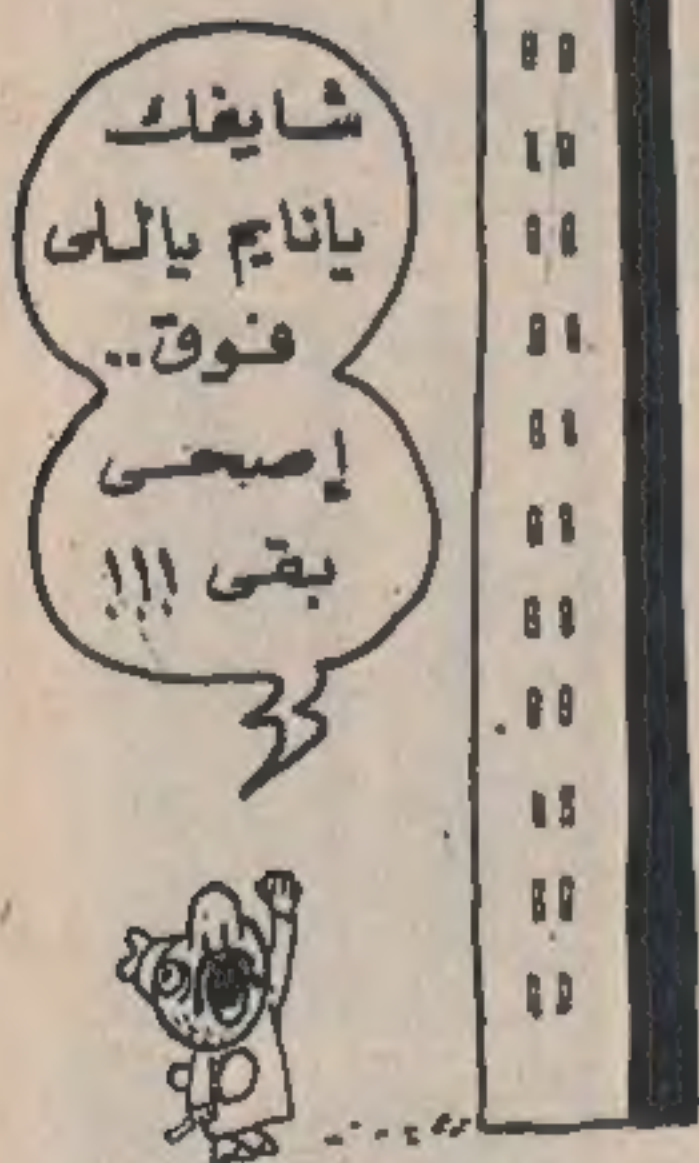 شايفك
يانايم ياللى
فوق..
إصحى
بقى !!!